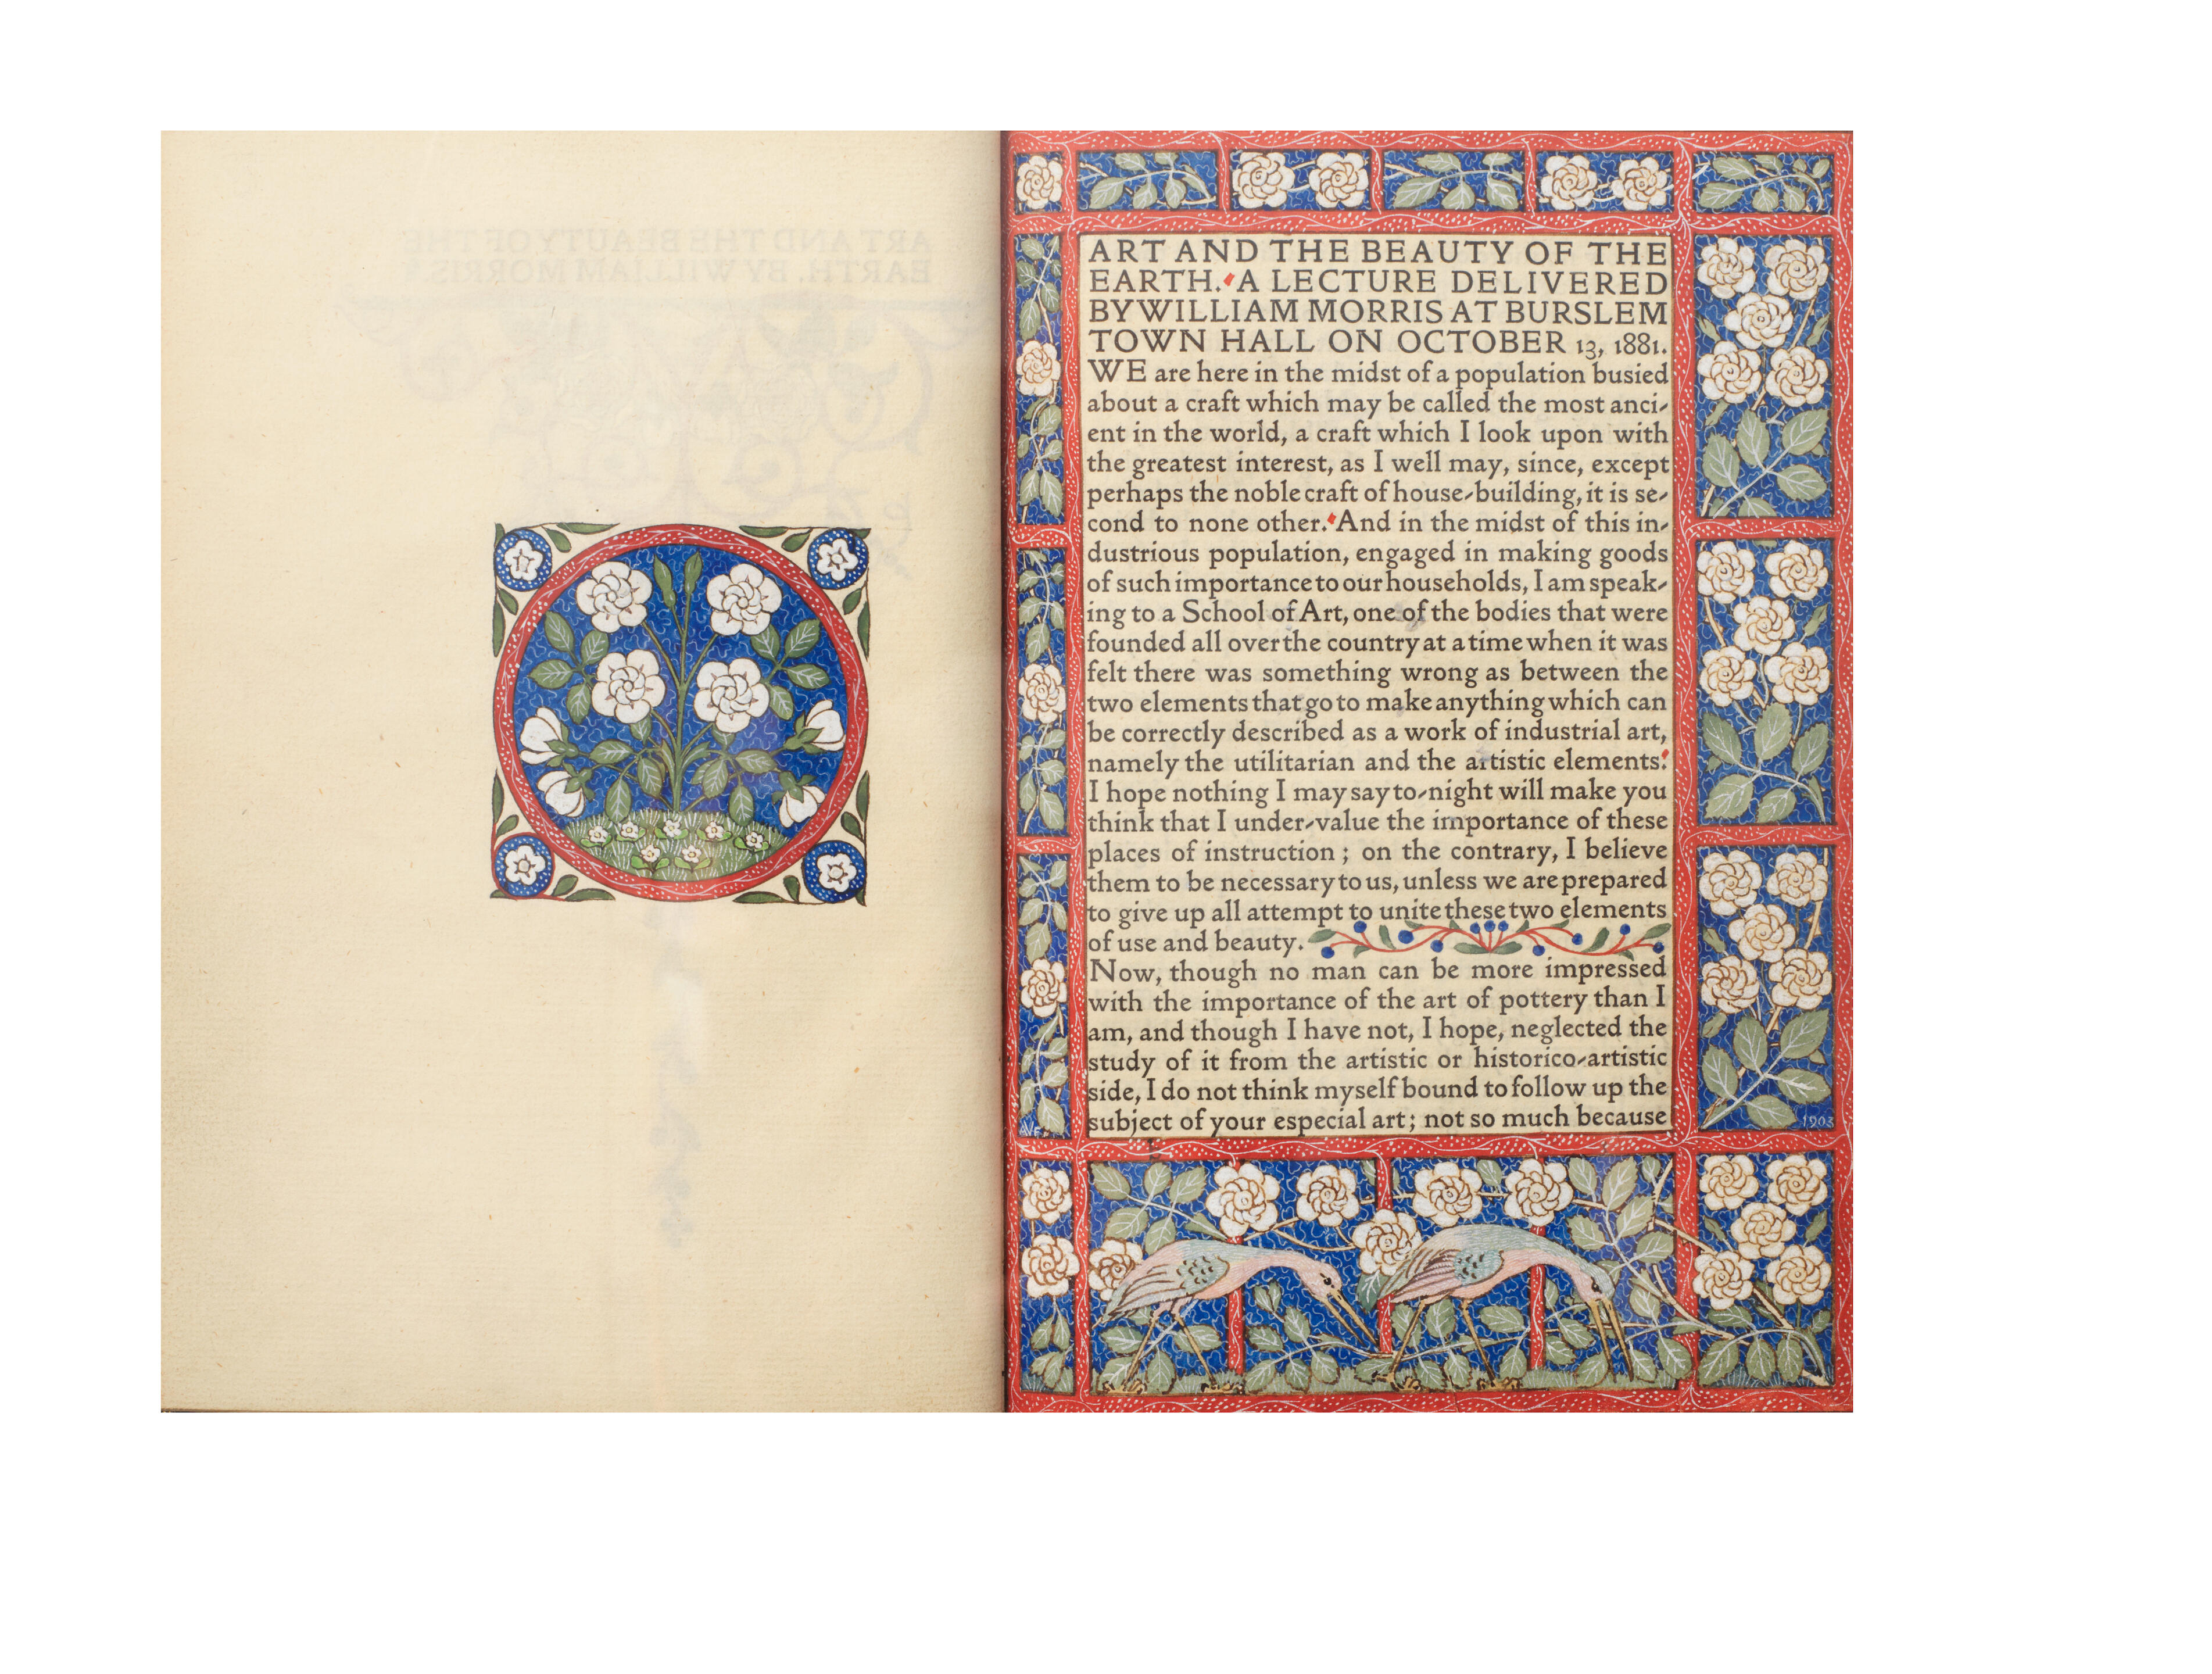 ART AND THE BEAUTY OF THE
EARTH. BY WILLIAM MORRIS.
ART AND THE BEAUTY OF THE
EARTH. A LECTURE DELIVERED
BY WILLIAM MORRIS AT BURSLEM
TOWN HALL ON OCTOBER 13, 1881.
WE are here in the midst of a population busied
about a craft which may be called the most anci-
ent in the world, a craft which I look upon with
the greatest interest, as I well may, since, except
perhaps the noble craft of house-building, it is se-
cond to none other. And in the midst of this in-
dustrious population, engaged in making goods
of such importance to our households, I am speak-
ing to a School of Art, one of the bodies that were
founded all over the country at a time when it was
felt there was something wrong as between the
two elements that go to make anything which can
be correctly described as a work of industrial art,
namely the utilitarian and the artistic elements.
I hope nothing I may say to-night will make you
think that I under-value the importance of these
places of instruction; on the contrary, I believe
them to be necessary to us, unless we are prepared
to give up all attempt to unite these two elements
of use and beauty.
Now, though no man can be more impressed
with the importance of the art of pottery than I
am, and though I have not, I hope, neglected the
study of it from the artistic or historico-artistic
side, I do not think myself bound to follow up the
subject of your especial art; not so much because
1903